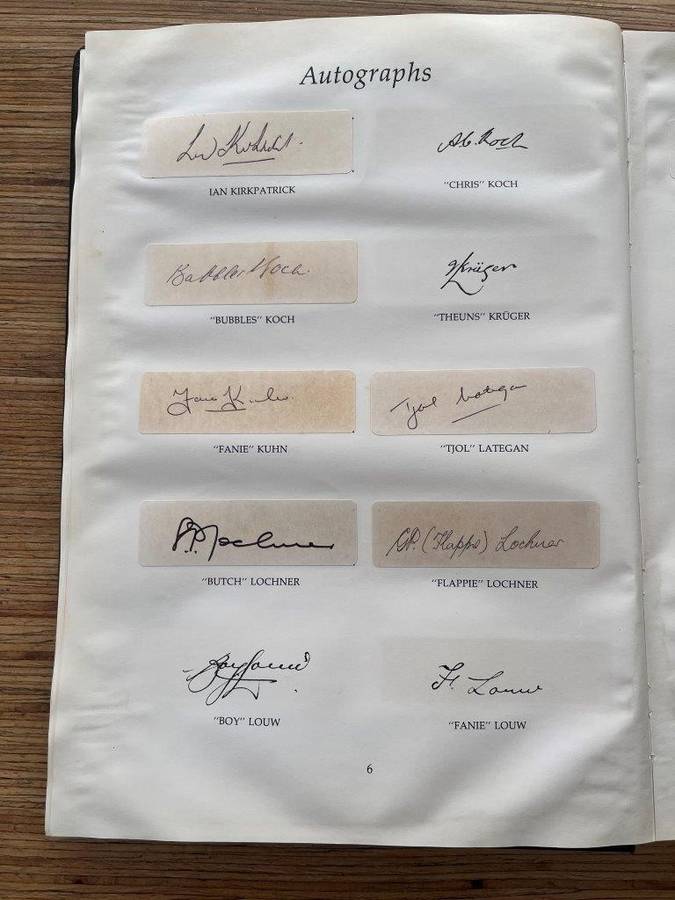 Autographs
IAN KIRKPATRICK
A.C. Koch
"CHRIS" KOCH
Bubbles Koch.
"BUBBLES" KOCH
Krüger
"THEUNS" KRÜGER
"FANIE" KUHN
Tjol Lategan
"TJOL" LATEGAN
"BUTCH" LOCHNER
GP. (Flappie) Lochner
"FLAPPIE" LOCHNER
Boy Louw
"BOY" LOUW
Louw
"FANIE" LOUW
6